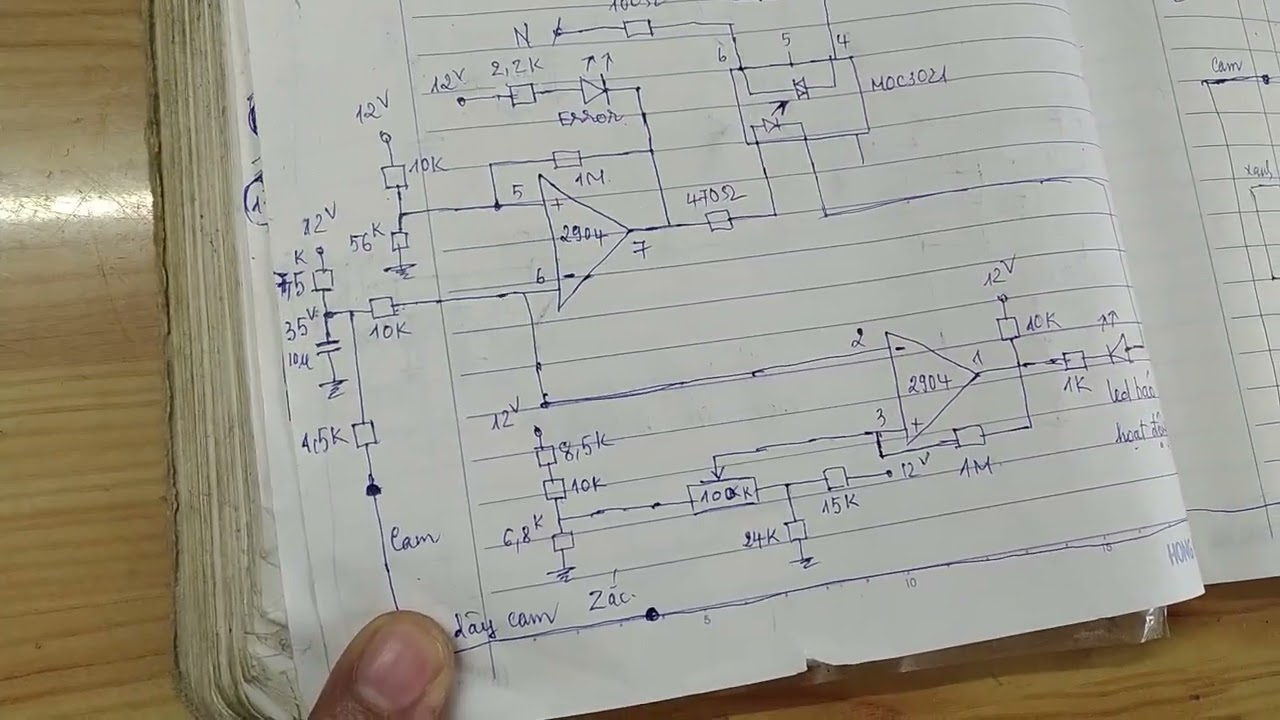 100Ω
N
6
5
4
12V
2,2K
MOC3021
Error
12V
10K
1M
5
+
470Ω
12V
56K
2904
7
K
6
-
7,5
12V
35V
10K
10K
10µ
2
-
1
2904
1K
12V
led báo
4,5K
8,5K
3
+
hoạt độ
10K
12V
1M
100K
15K
6,8K
24K
Cam
HONG
15
10
Zắc
dây cam
5
Cam
xanh
1